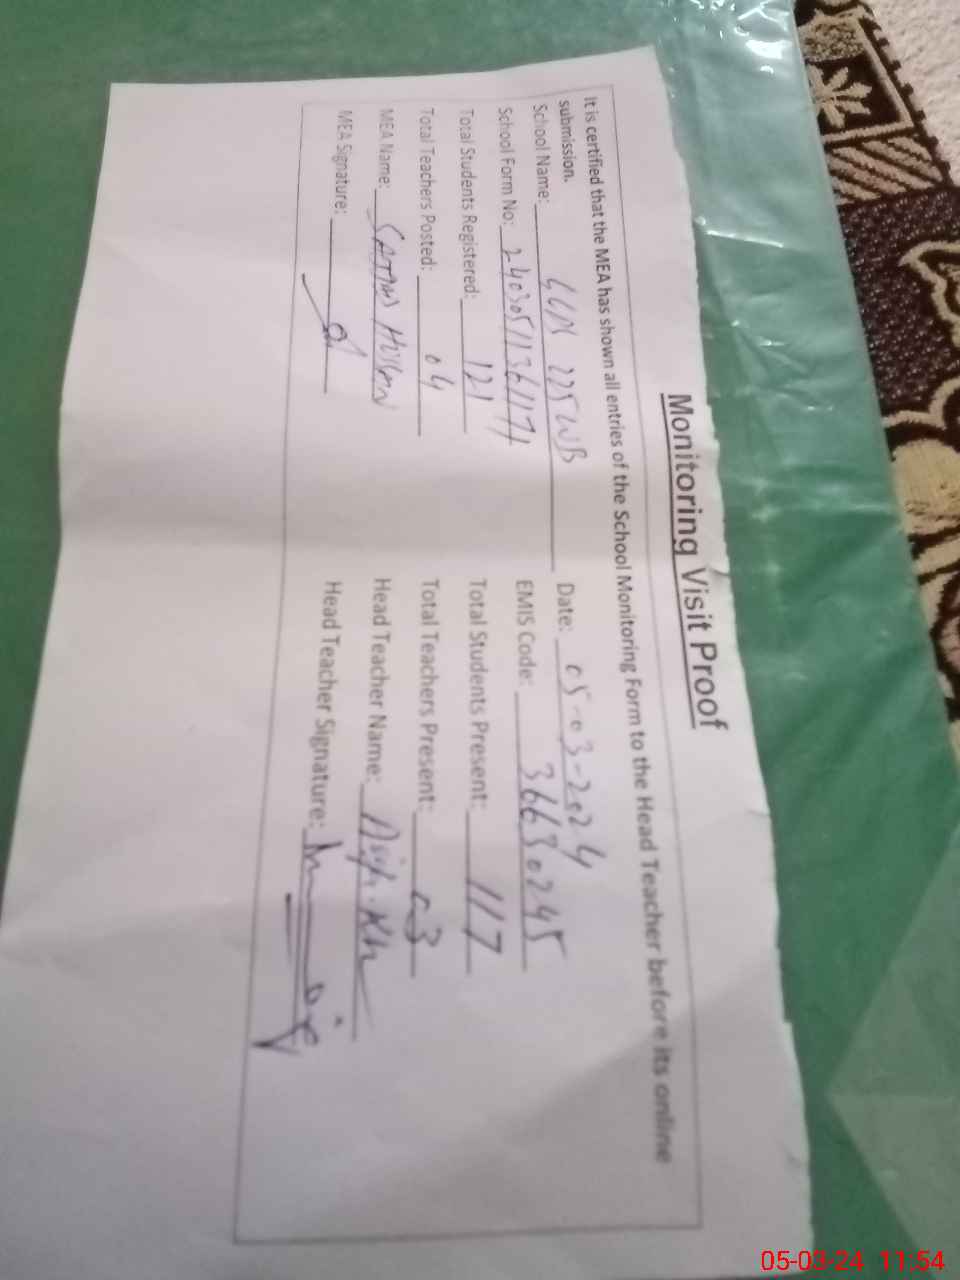 Monitoring Visit Proof
It is certified that the MEA has shown all entries of the School Monitoring Form to the Head Teacher before its online
submission.
School Name: 225 WB Date: 05-03-2024
School Form No: EMIS Code: 36630245
Total Students Registered: 121 Total Students Present: 117
Total Teachers Posted: 04 Total Teachers Present: 03
MEA Name: Head Teacher Name:
MEA Signature: Head Teacher Signature:
05-03-24 11:54